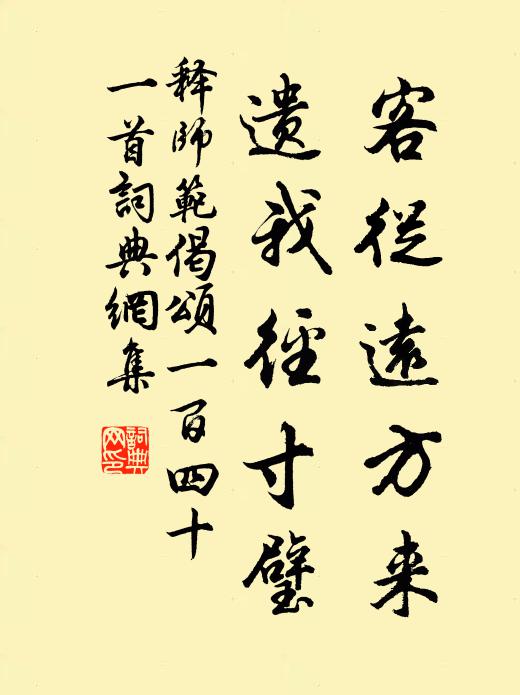 客從遠方来
遺我徑寸璧
释師範偈頌一百四十
一首詞典網集
詞典
网印